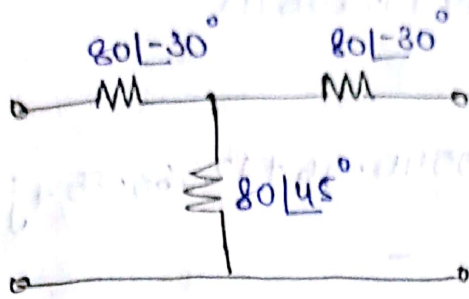 80∠-30° 80∠-30°
80∠45°